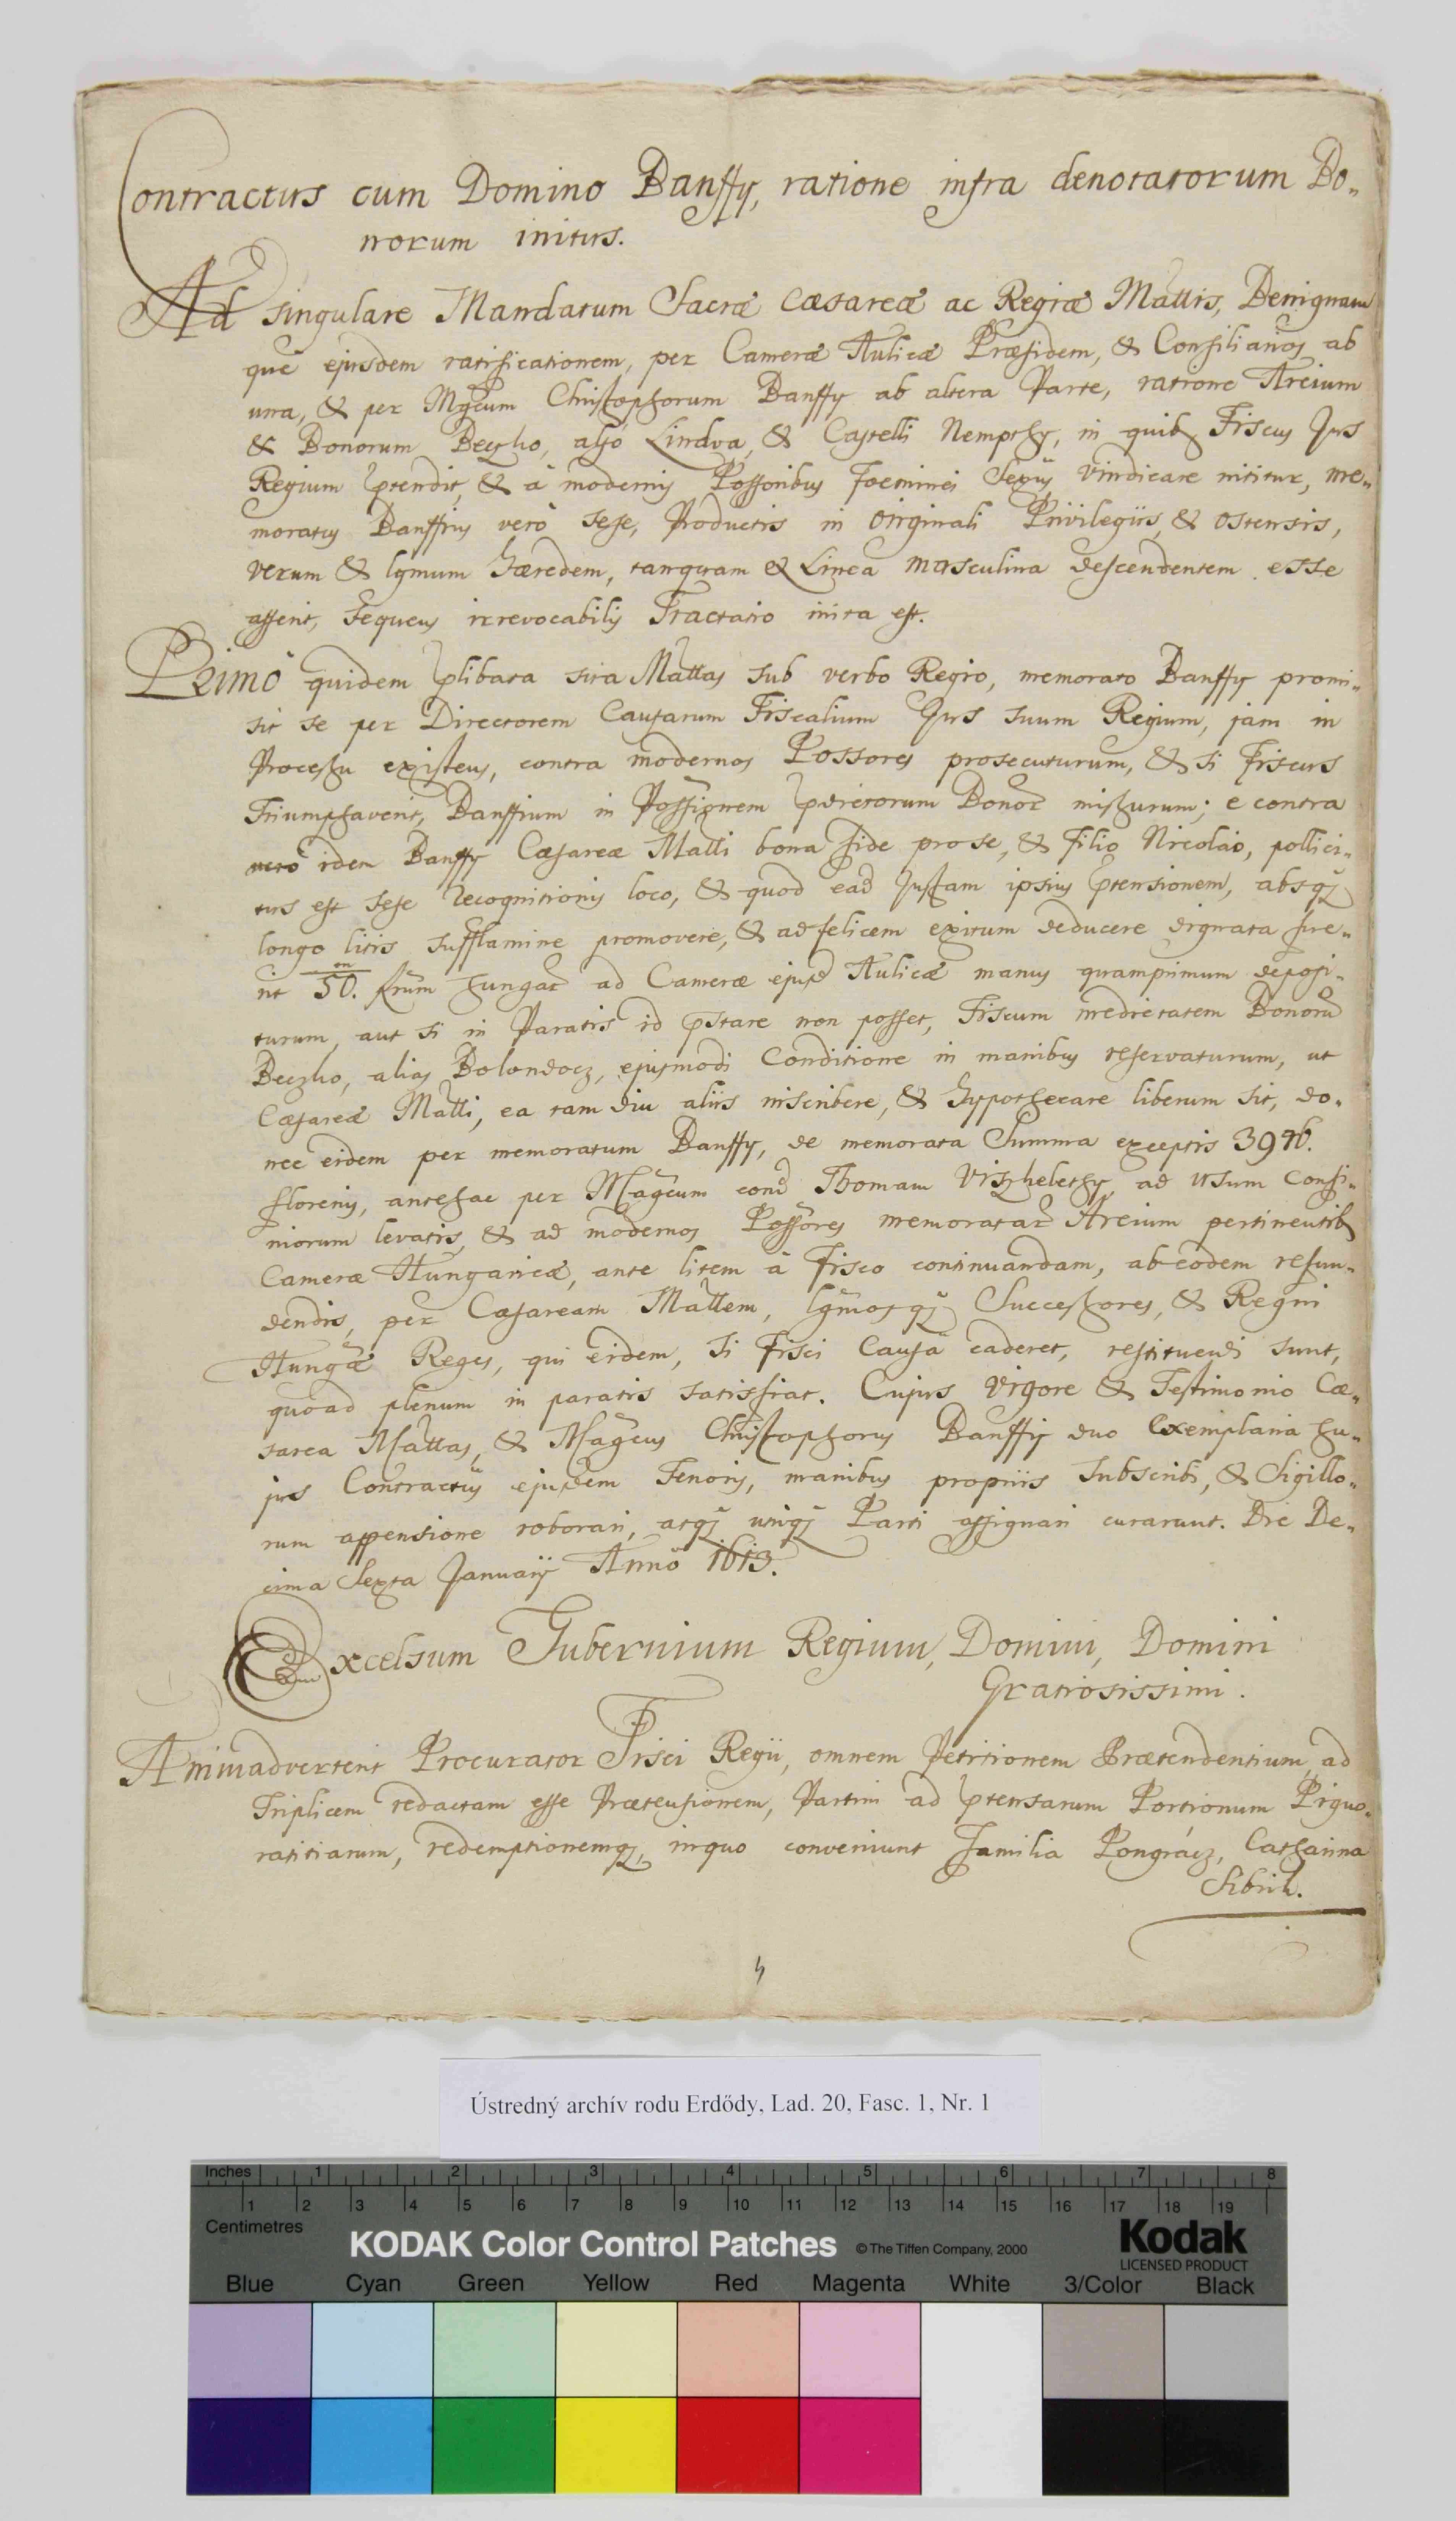 Contractus cum Domino Banffy, ratione infra denotatorum Bo„
norum initus.
Ad singulare Mandatum Sacræ Cæsareæ ac Regiæ Mattis, Benignam
que ejusdem ratificationem, per Cameræ Aulicæ Præsidem, & Consiliarios ab
una, & per Mgcum Christophorum Banffy ab altera Parte, ratione Arcium
& Bonorum Beczko, also Lindva, & Castelli Nempthy, in quib9 Fiscus Jus
Regium prendit, & à modernis Possoribus foeminei Sexus vindicare nititur, me„
moratus Banffius verò sese, Productis in originali Privilegiis, & ostensis,
verum & lgmum hæredem, tanquam ex Linea masculina descendentem esse
asserit, sequens irrevocabilis Tractatio inita est.
Primò quidem plibata sua Mattas sub verbo Regio, memorato Banffy promi„
sit se per Directorem Causarum Fiscalium Jus suum Regium, jam in
Processu existens, contra modernos Possores prosecuturum, & si Fiscus
Triumphaverit, Banffium in Possionem pdictorum Bonor missurum; e contra
verò idem Banffy Cæsareæ Matti bona fide pro se, & filio Nicolao, pollici„
tus est sese recognitionis loco, & quod ead justam ipsius prensionem, absq3
longo litis sufflamine promovere, & ad felicem exitum deducere dignata fue„
rit 50. m flnum hungar ad Cameræ ejusd Aulicæ manus quamprimum deposi„
turum, aut si in Paratis id pstare non posset, Fiscum medietatem Bonorũ
Beczko, alias Bolondocz, ejusmodi Conditione in manibus reservaturum, ut
Cæsareæ Matti, ea tam diu aliis inscribere, & hypothecare liberum sit, do„
nec eidem per memoratum Banffy, de memorata Summa exceptis 3976.
florenis, antehac per Magcum cond Thomam Viszkelethy ad usum Confi„
niorum levatis, & ad modernos Possores memoratar Arcium pertinentib9
Cameræ Hungaricæ, ante litem à fisco continuandam, ab eodem refun„
dendis, per Cæsaream Mattem, lgmosq3 Successores, & Regni
Hungæ Reges, qui eidem, si fisci Causa caderet, restituendi sunt,
quoad plenum in paratis satisfiat. Cujus vigore & Testimonio Cæ„
sarea Mattas, & Magcus Christophorus Banffy duo Exemplaria hu„
jus Contractus ejusdem Tenoris, manibus propriis subscribi, & Sigillo„
rum appensione roborari, atq3 utriq3 Parti assignari curarunt. Die De„
cima Sexta Januarij Anno 1613.
Excelsum Gubernium Regium, Domini, Domini
Gratiosissimi.
Animadvertent Procurator Fisci Regii, omnem Petitionem Prætendentium, ad
Triplicem redactam esse Prætensionem, Partim ad prensarum Portionum Pigno„
ratitiarum, redemptionemq3, in quo conveniunt Familia Pongrácz, Catharina
Sibrik.
4
Ústredný archív rodu Erdődy, Lad. 20, Fasc. 1, Nr. 1
Inches 1 2 3 4 5 6 7 8
1 2 3 4 5 6 7 8 9 10 11 12 13 14 15 16 17 18 19
Centimetres
KODAK Color Control Patches © The Tiffen Company, 2000 Kodak
LICENSED PRODUCT
Blue Cyan Green Yellow Red Magenta White 3/Color Black